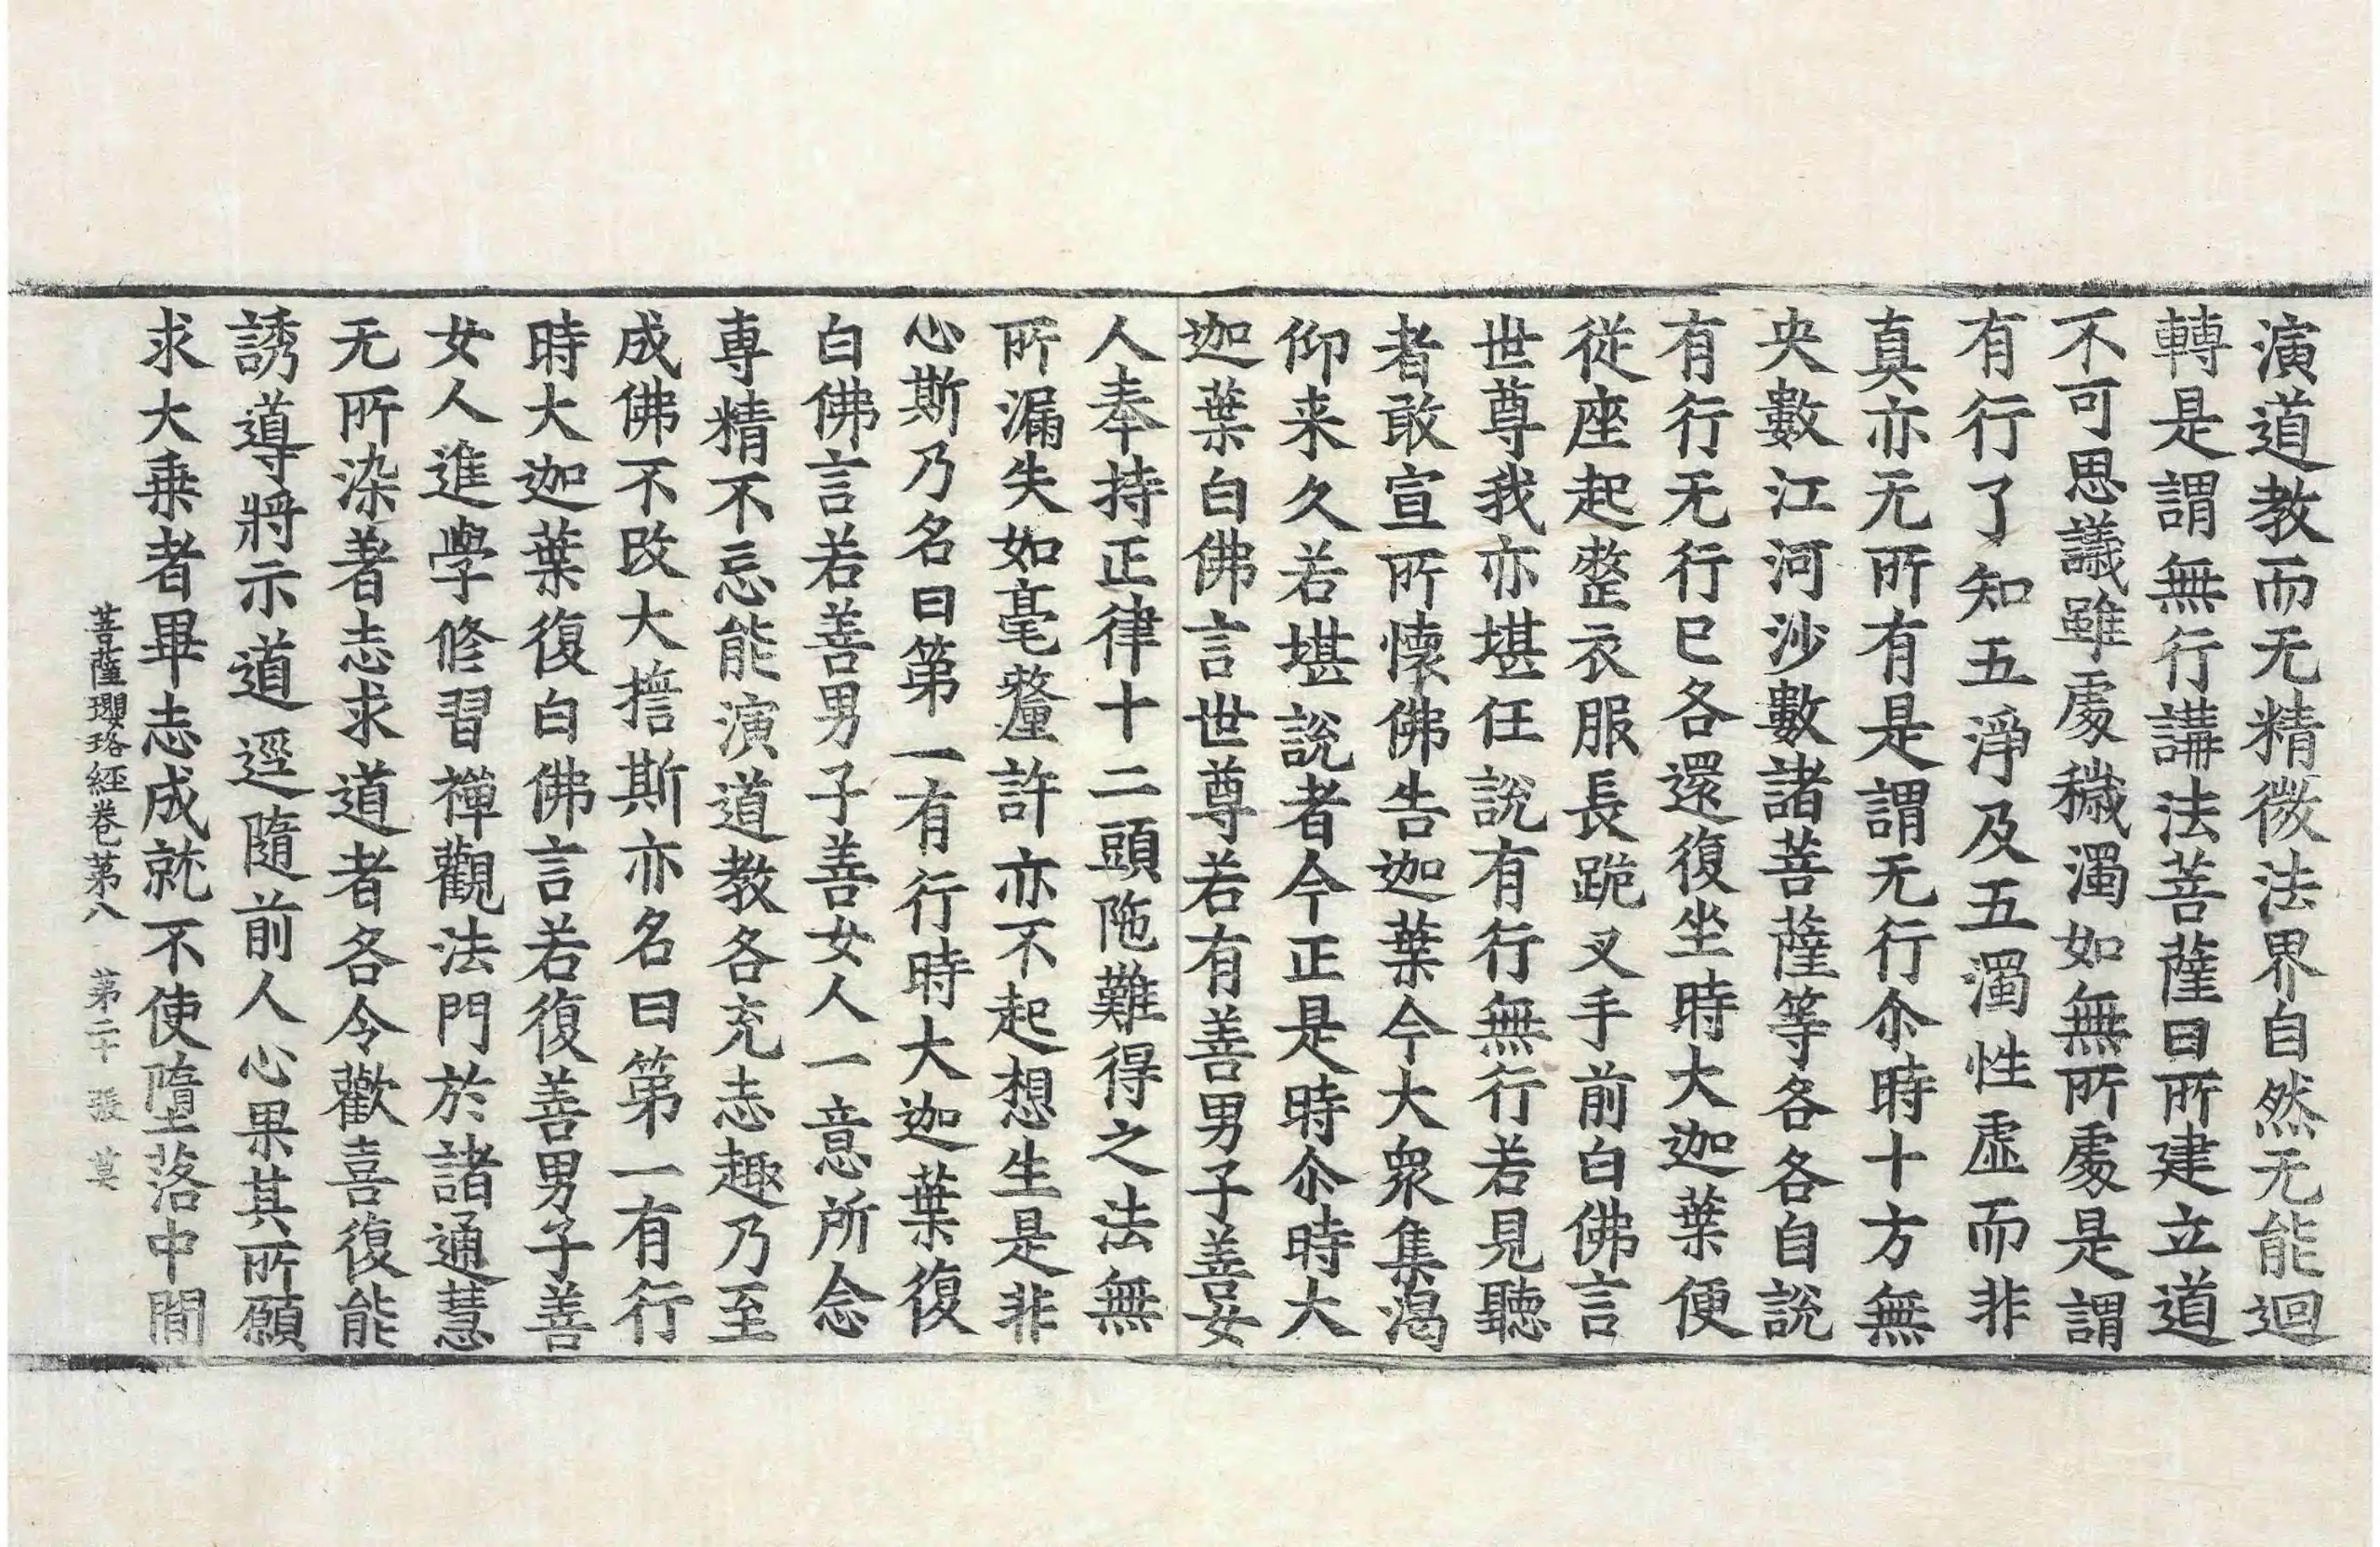 演道教而无精微法界自然无能迴
轉是謂無行講法菩薩曰所建立道
不可思議雖處穢濁如無所處是謂
有行了知五淨及五濁性虛而非
真亦无所有是謂无行尒時十方無
央數江河沙數諸菩薩等各各自說
有行无行已各還復坐時大迦葉便
從座起整衣服長跪叉手前白佛言
世尊我亦堪任說有行無行若見聽
者敢宣所懷佛告迦葉今大衆集渴
仰来久若堪說者今正是時尒時大
迦葉白佛言世尊若有善男子善女
人奉持正律十二頭陁難得之法無
所漏失如毫釐許亦不起想生是非
心斯乃名曰第一有行時大迦葉復
白佛言若善男子善女人一意所念
專精不忘能演道教各充志趣乃至
成佛不改大誓斯亦名曰第一有行
時大迦葉復白佛言若復善男子善
女人進學修習禪觀法門於諸通慧
无所染著志求道者各令歡喜復能
誘導將示道逕隨前人心果其所願
求大乗者畢志成就不使墮落中間
菩薩瓔珞經卷第八 第二十 張 莫